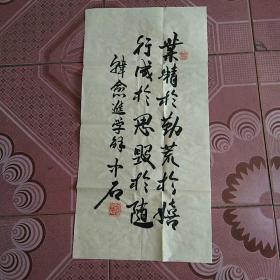 業精於勤荒於嬉
行成於思毀於随
韓愈進学解 才石